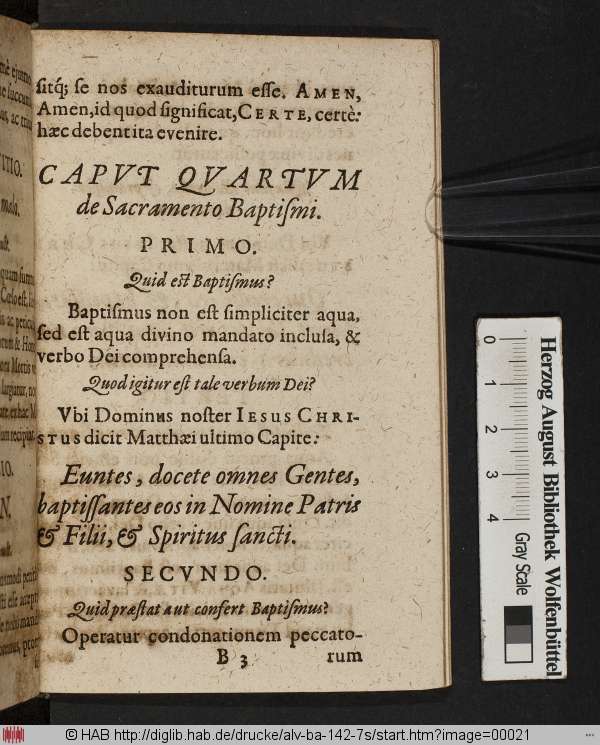 ſitq́; ſe nos exauditurum eſſe. AMEN,
Amen, id quod ſignificat, CERTE, certè:
hæc debent ita evenire.
CAPVT QVARTVM
de Sacramento Baptiſmi.
PRIMO.
Quid eſt Baptiſmus?
Baptiſmus non eſt ſimpliciter aqua,
ſed eſt aqua divino mandato incluſa, &
verbo Dei comprehenſa.
Quod igitur eſt tale verbum Dei?
Vbi Dominus noſter IESUS CHRI-
STUS dicit Matthæi ultimo Capite:
Euntes, docete omnes Gentes,
baptiſſantes eos in Nomine Patris
& Filii, & Spiritus ſancti.
SECVNDO.
Quid præſtat aut confert Baptiſmus?
Operatur condonationem peccato-
B 3 rum
0
1
2
3
4
Herzog August Bibliothek Wolfenbüttel
Gray Scale
© HAB http://diglib.hab.de/drucke/alv-ba-142-7s/start.htm?image=00021